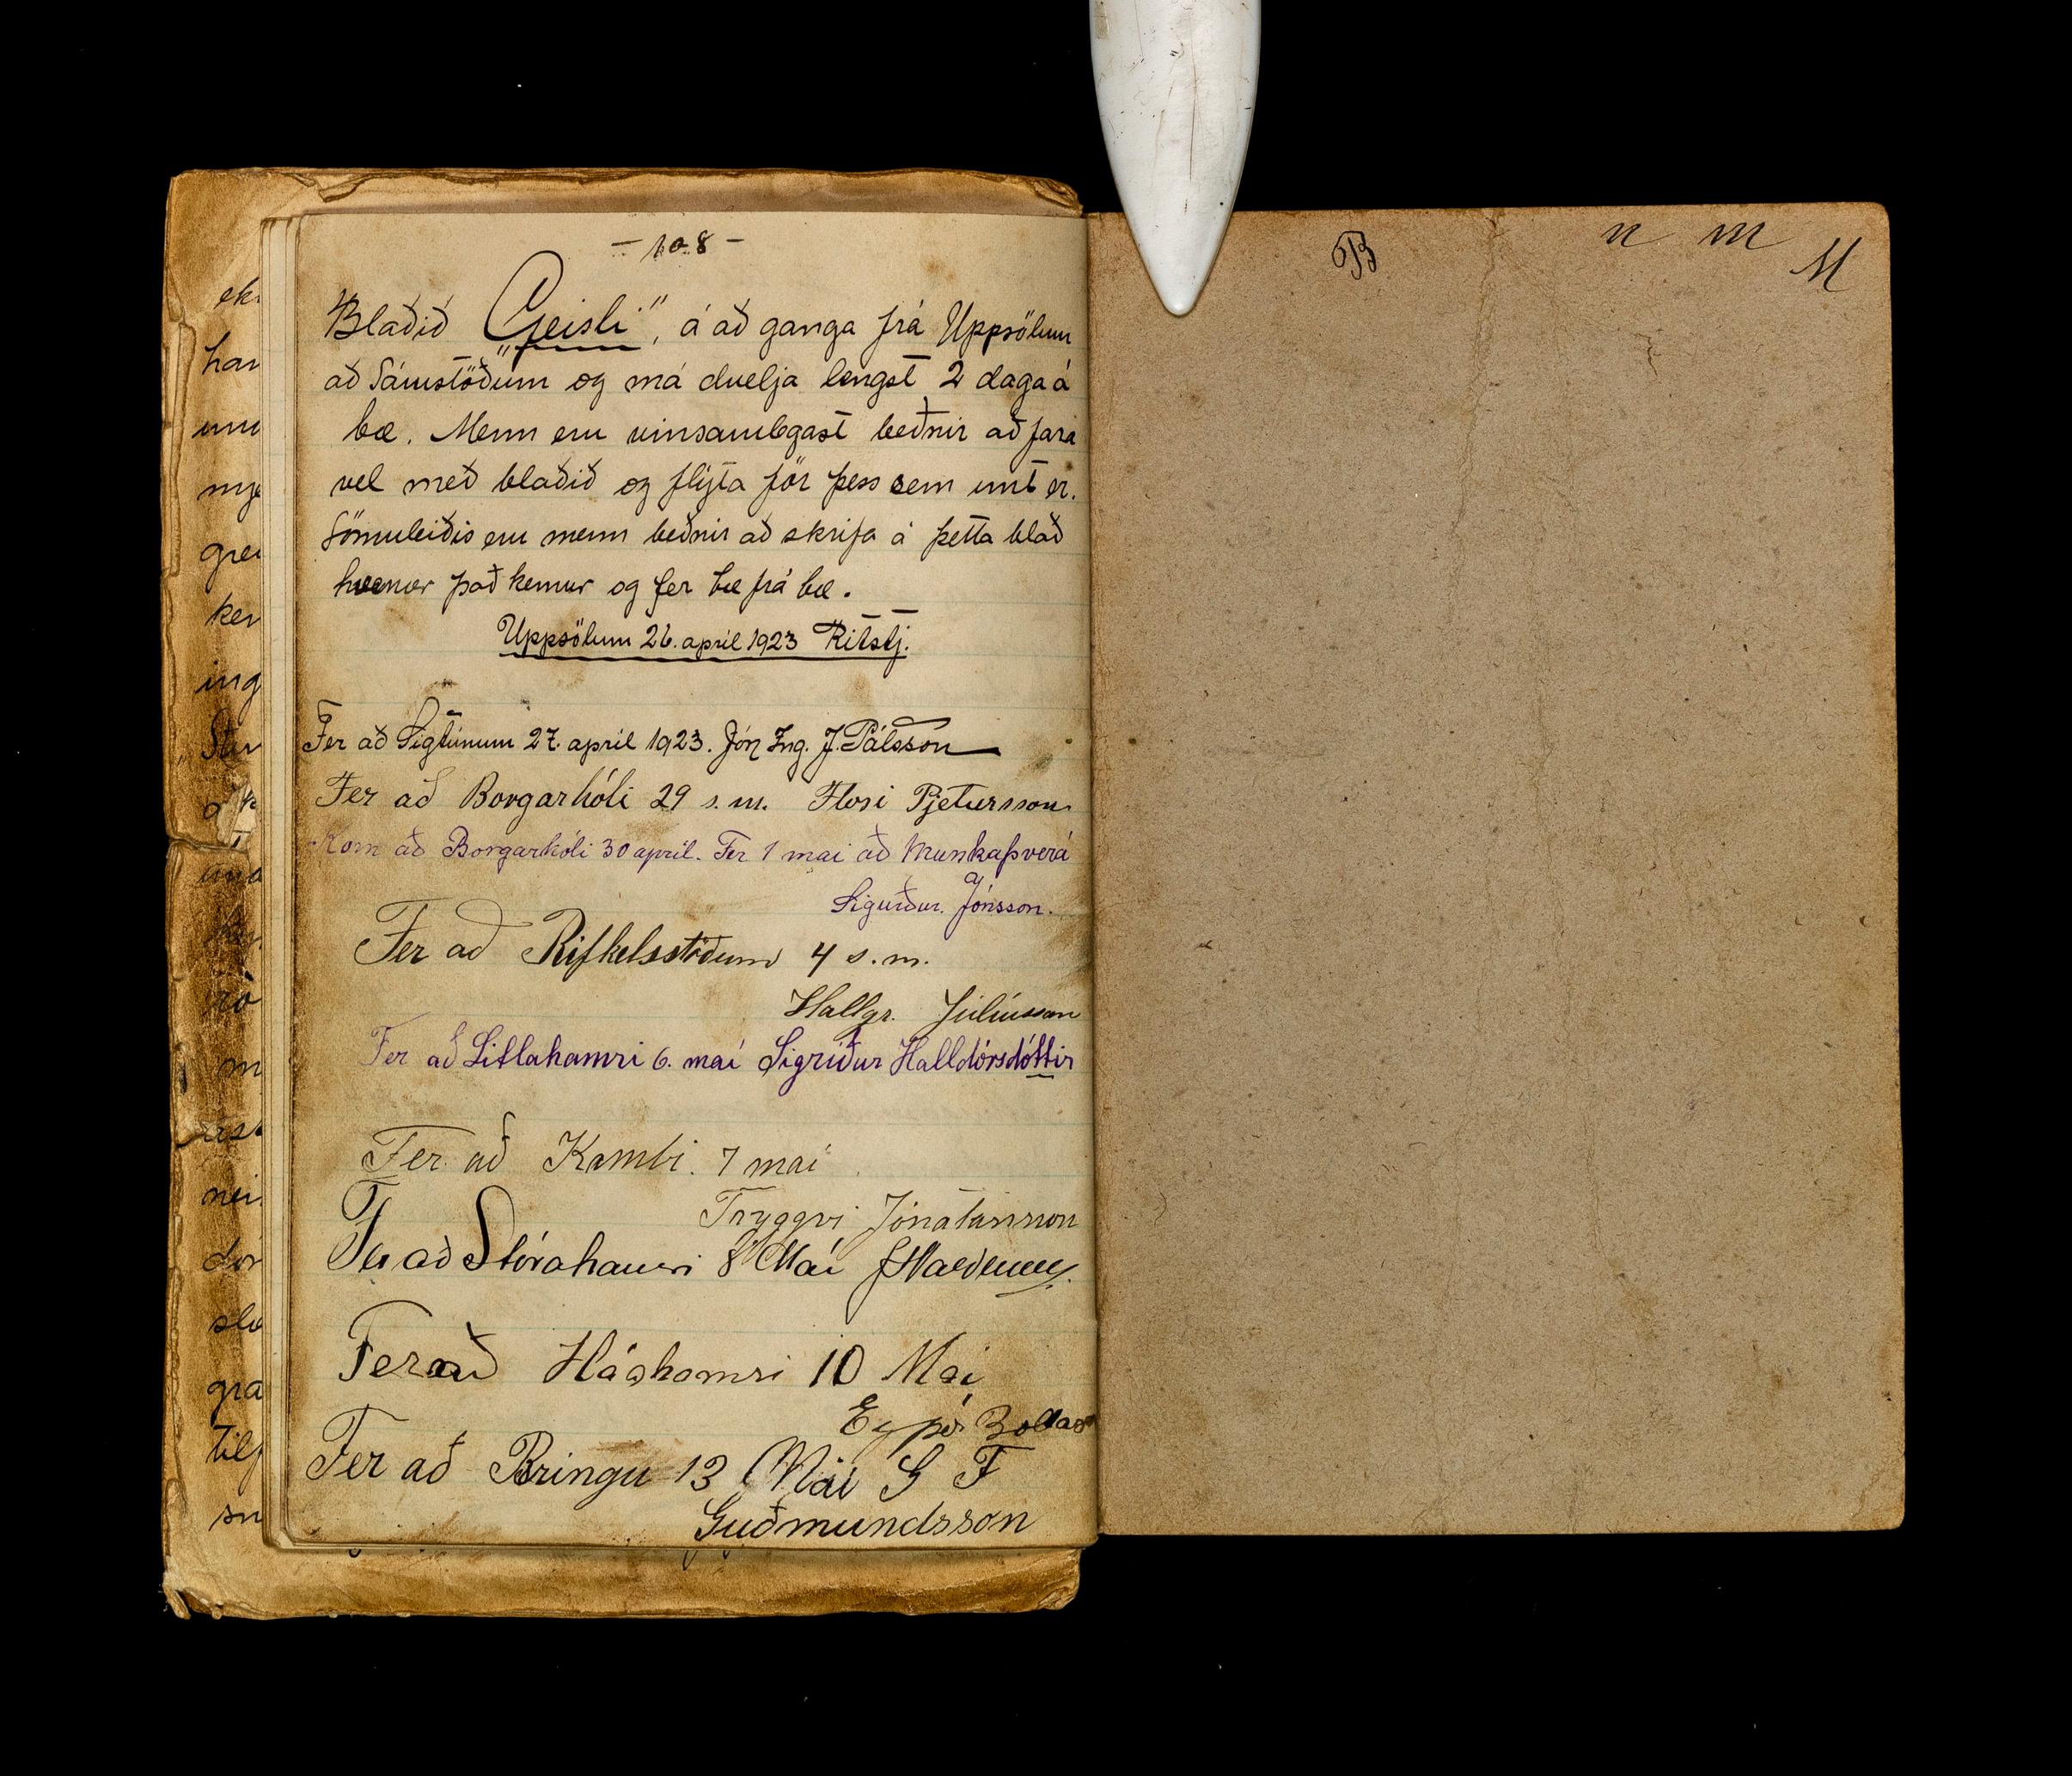 - 108 -
Blaðið „Geisli", á að ganga frá Uppsölum
að Sámstöðum og má dvelja lengst 2 daga á
bæ. Menn eru vinsamlegast beðnir að fara
vel með blaðið og flýta för þess sem unt er.
Sömuleiðis eru menn beðnir að skrifa á þetta blað
hvenær það kemur og fer bæ frá bæ.
Uppsölum 26. apríl 1923 Ritstj.
Fer að Sigtúnum 27. apríl 1923. Jón Ing. J. Pálsson
Fer að Borgarhóli 29 s.m. Flosi Pjetursson
Kom að Borgarhóli 30 apríl. Fer 1 mai að Munkaþverá
Sigurður Jónsson.
Fer að Rifkelsstöðum 4 s.m.
Hallgr. Júlíusson
Fer að Litlahamri 6. maí Sigríður Halldórsdóttir
Fer að Kambi. 7 maí
Tryggvi Jónatansson
Fer að Stórahamri 8 Maí
Fer að Háahamri 10 Mai
Fer að Bringu 13 Mái S F
Guðmundsson
ek
har
unu
mje
grei
ker
ing
„Stu
una
rö
m
nei
slo
gra
til
sn
B
n m
M